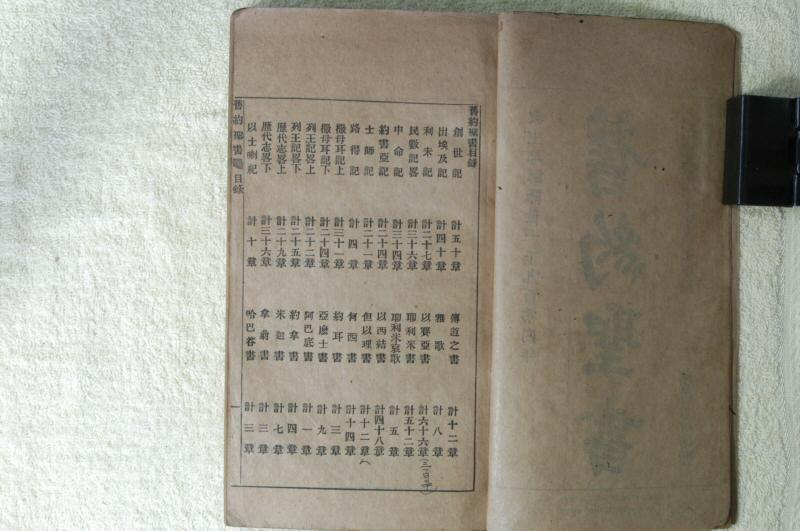 舊約聖書目錄
創世記 計五十章 傳道之書 計十二章
出埃及記 計四十章 雅歌 計八章
利未記 計二十七章 以賽亞書 計六十六章
民數記畧 計三十六章 耶利米書 計五十二章
申命記 計三十四章 耶利米哀歌 計五章
約書亞記 計二十四章 以西結書 計四十八章
士師記 計二十一章 但以理書 計十二章
路得記 計四章 何西書 計十四章
撒母耳記上 計三十一章 約耳書 計三章
撒母耳記下 計二十四章 亞麽士書 計九章
列王記畧上 計二十二章 阿巴底書 計一章
列王記畧下 計二十五章 約拿書 計四章
歷代志畧上 計二十九章 米迦書 計七章
歷代志畧下 計三十六章 拿翁書 計三章
以士喇記 計十章 哈巴谷書 計三章
舊約聖書 目錄 一
舊約聖書